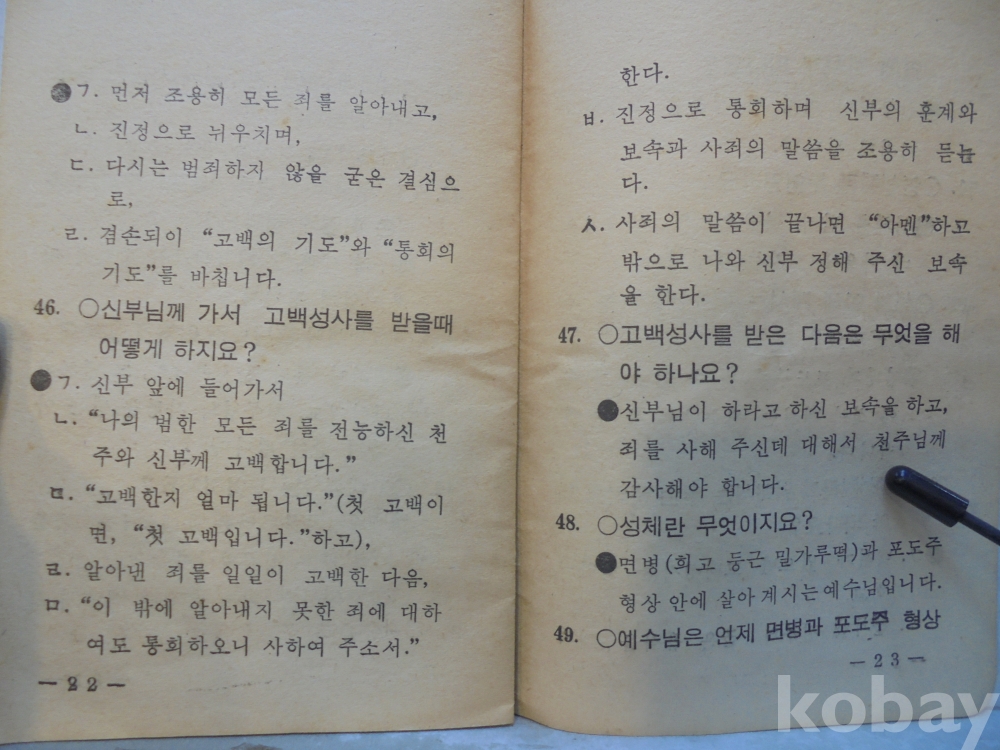 ●ㄱ. 먼저 조용히 모든 죄를 알아내고,
ㄴ. 진정으로 뉘우치며,
ㄷ. 다시는 범죄하지 않을 굳은 결심으
로,
ㄹ. 겸손되이 “고백의 기도”와 “통회의
기도”를 바칩니다.
46. ○신부님께 가서 고백성사를 받을때
어떻게 하지요?
●ㄱ. 신부 앞에 들어가서
ㄴ. “나의 범한 모든 죄를 전능하신 천
주와 신부께 고백합니다.”
ㄷ. “고백한지 얼마 됩니다.”(첫 고백이
면, “첫 고백입니다.”하고),
ㄹ. 알아낸 죄를 일일이 고백한 다음,
ㅁ. “이 밖에 알아내지 못한 죄에 대하
여도 통회하오니 사하여 주소서.”
— 22 —
한다.
ㅂ. 진정으로 통회하며 신부의 훈계와
보속과 사죄의 말씀을 조용히 듣는
다.
ㅅ. 사죄의 말씀이 끝나면 “아멘”하고
밖으로 나와 신부 정해 주신 보속
을 한다.
47. ○고백성사를 받은 다음은 무엇을 해
야 하나요?
●신부님이 하라고 하신 보속을 하고,
죄를 사해 주신데 대해서 천주님께
감사해야 합니다.
48. ○성체란 무엇이지요?
●면병(희고 둥근 밀가루떡)과 포도주
형상 안에 살아 계시는 예수님입니다.
49. ○예수님은 언제 면병과 포도주 형상
— 23 —
kobay